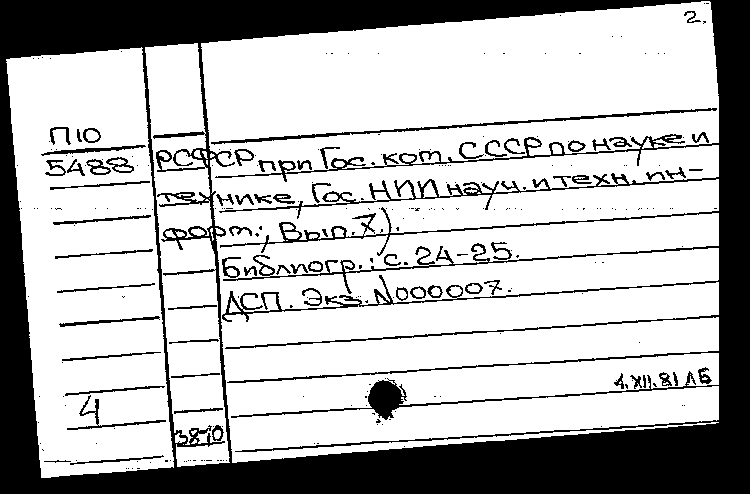 2.
П10
5488 РСФСР при Гос. ком. СССР по науке и
технике, Гос. НПИ науч. и техн. ин-
форт.; Вып. 7).
Библиогр.: с. 24-25.
ДСП. Экз. N000007.
4.XII.81 ЛБ
4
38-10